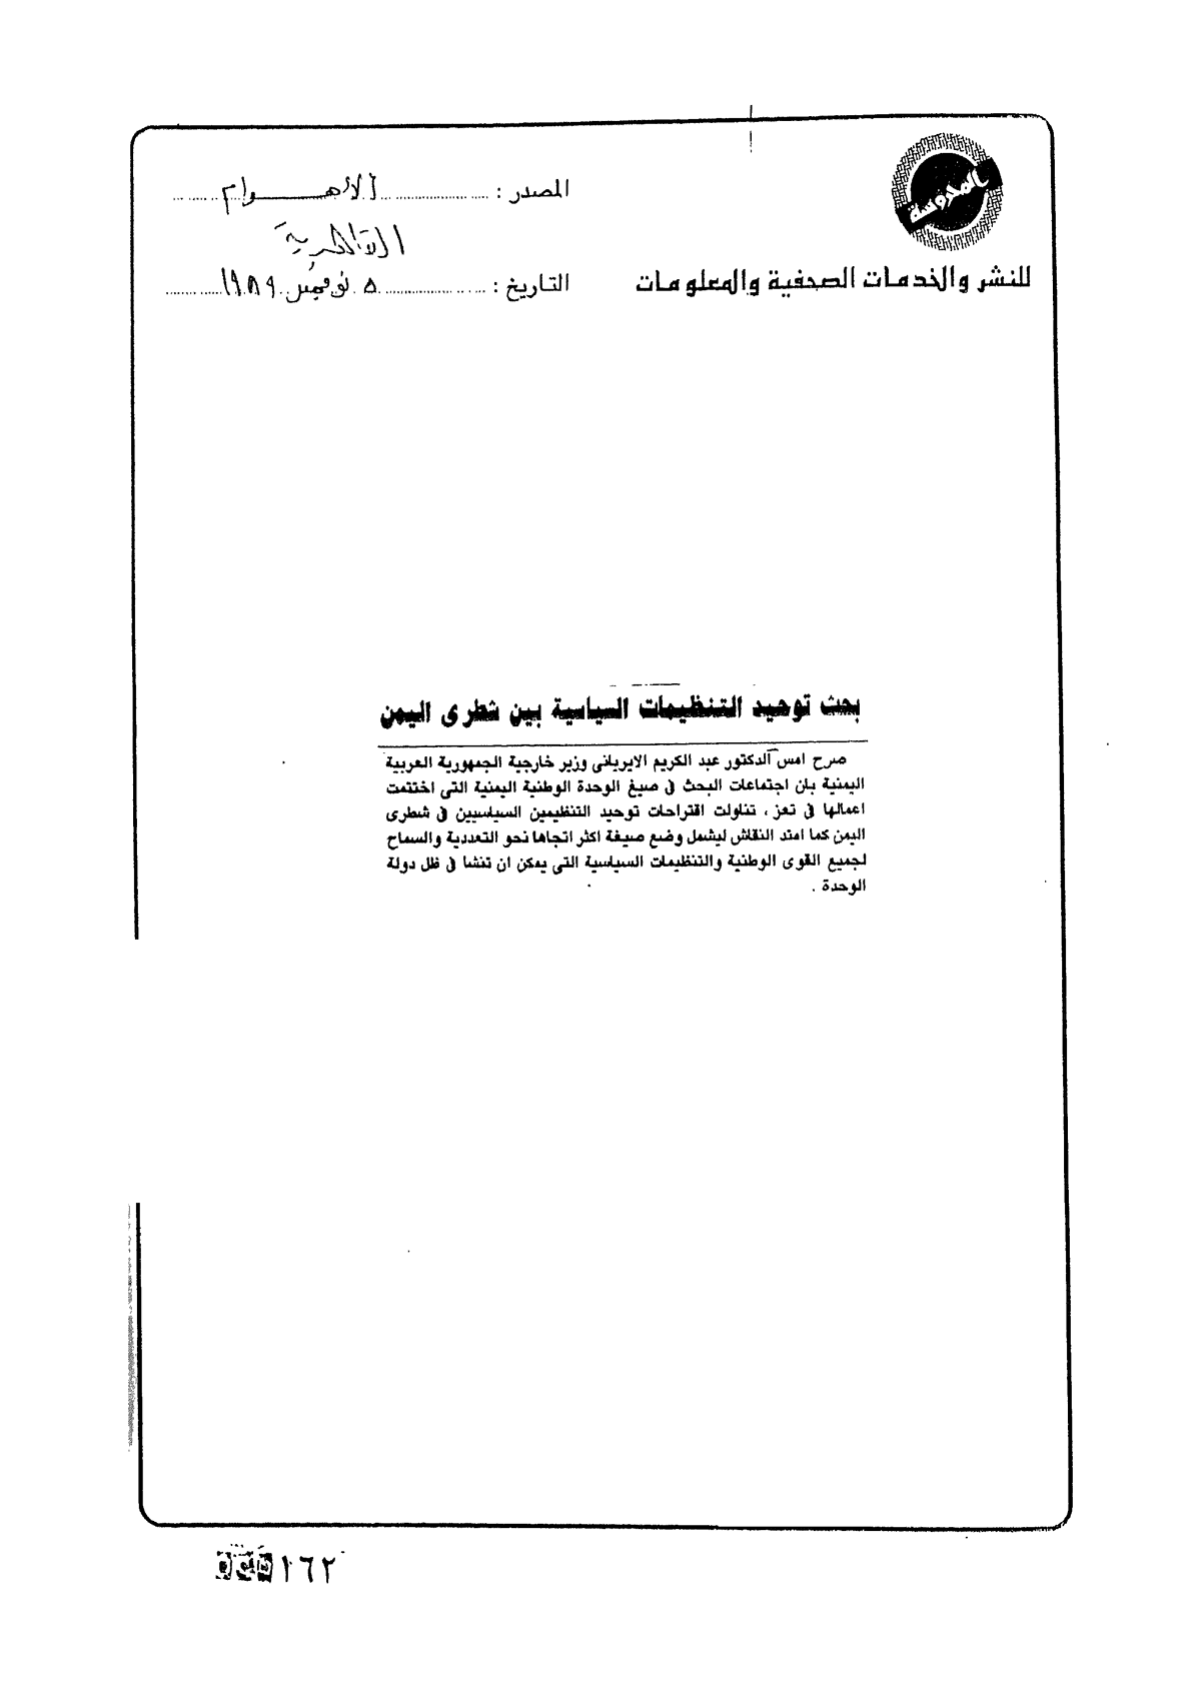 المحروسة
للنشر والخدمات الصحفية والمعلومات
المصدر : الأهرام
القاهرية
التاريخ : ٥ نوفمبر ١٩٨٩
بحث توحيد التنظيمات السياسية بين شطرى اليمن
صرح امس الدكتور عبد الكريم الايريانى وزير خارجية الجمهورية العربية
اليمنية بان اجتماعات البحث فى صيغ الوحدة الوطنية اليمنية التى اختتمت
اعمالها فى تعز ، تناولت اقتراحات توحيد التنظيمين السياسيين فى شطرى
اليمن كما امتد النقاش ليشمل وضع صيغة اكثر اتجاها نحو التعددية والسماح
لجميع القوى الوطنية والتنظيمات السياسية التى يمكن ان تنشا فى ظل دولة
الوحدة .
١٦٢